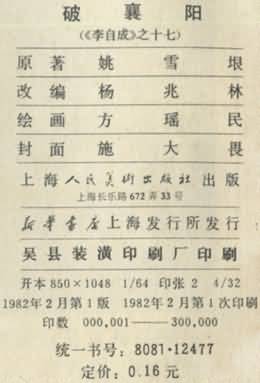 破襄阳
(《李自成》之十七)
原著 姚雪垠
改编 杨兆林
绘画 方瑶民
封面 施大畏
上海人民美术出版社出版
上海长乐路672弄33号
新华书店上海发行所发行
吴县装潢印刷厂印刷
开本850×1048 1/64 印张2 4/32
1982年2月第1版 1982年2月第1次印刷
印数 000,001——300,000
统一书号:8081·12477
定价:0.16元